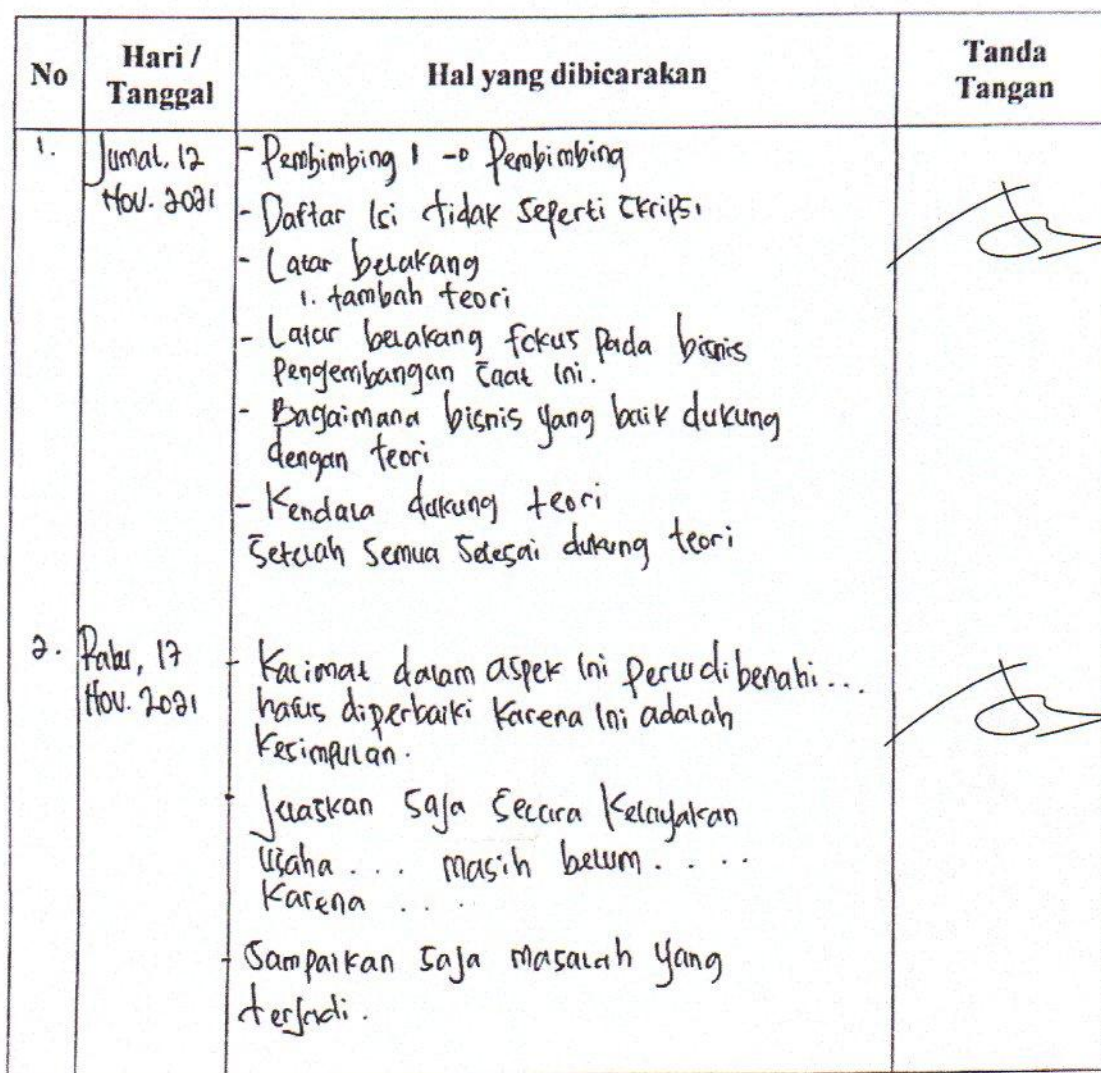 No
Hari /
Tanggal
Hal yang dibicarakan
Tanda
Tangan
1.
Jumat, 12
Nov. 2021
- Pembimbing 1 → Pembimbing
- Daftar Isi tidak seperti skripsi
- Latar belakang
1. tambah teori
- Latar belakang fokus pada bisnis
Pengembangan saat ini.
- Bagaimana bisnis yang baik dukung
dengan teori
- Kendala dukung teori
Setelah semua selesai dukung teori
2.
Rabu, 17
Nov. 2021
- Kalimat dalam aspek ini perlu dibenahi...
harus diperbaiki karena ini adalah
kesimpulan.
- Jelaskan saja secara kelayakan
usaha ... masih belum ....
karena ...
- Sampaikan saja masalah yang
terjadi.